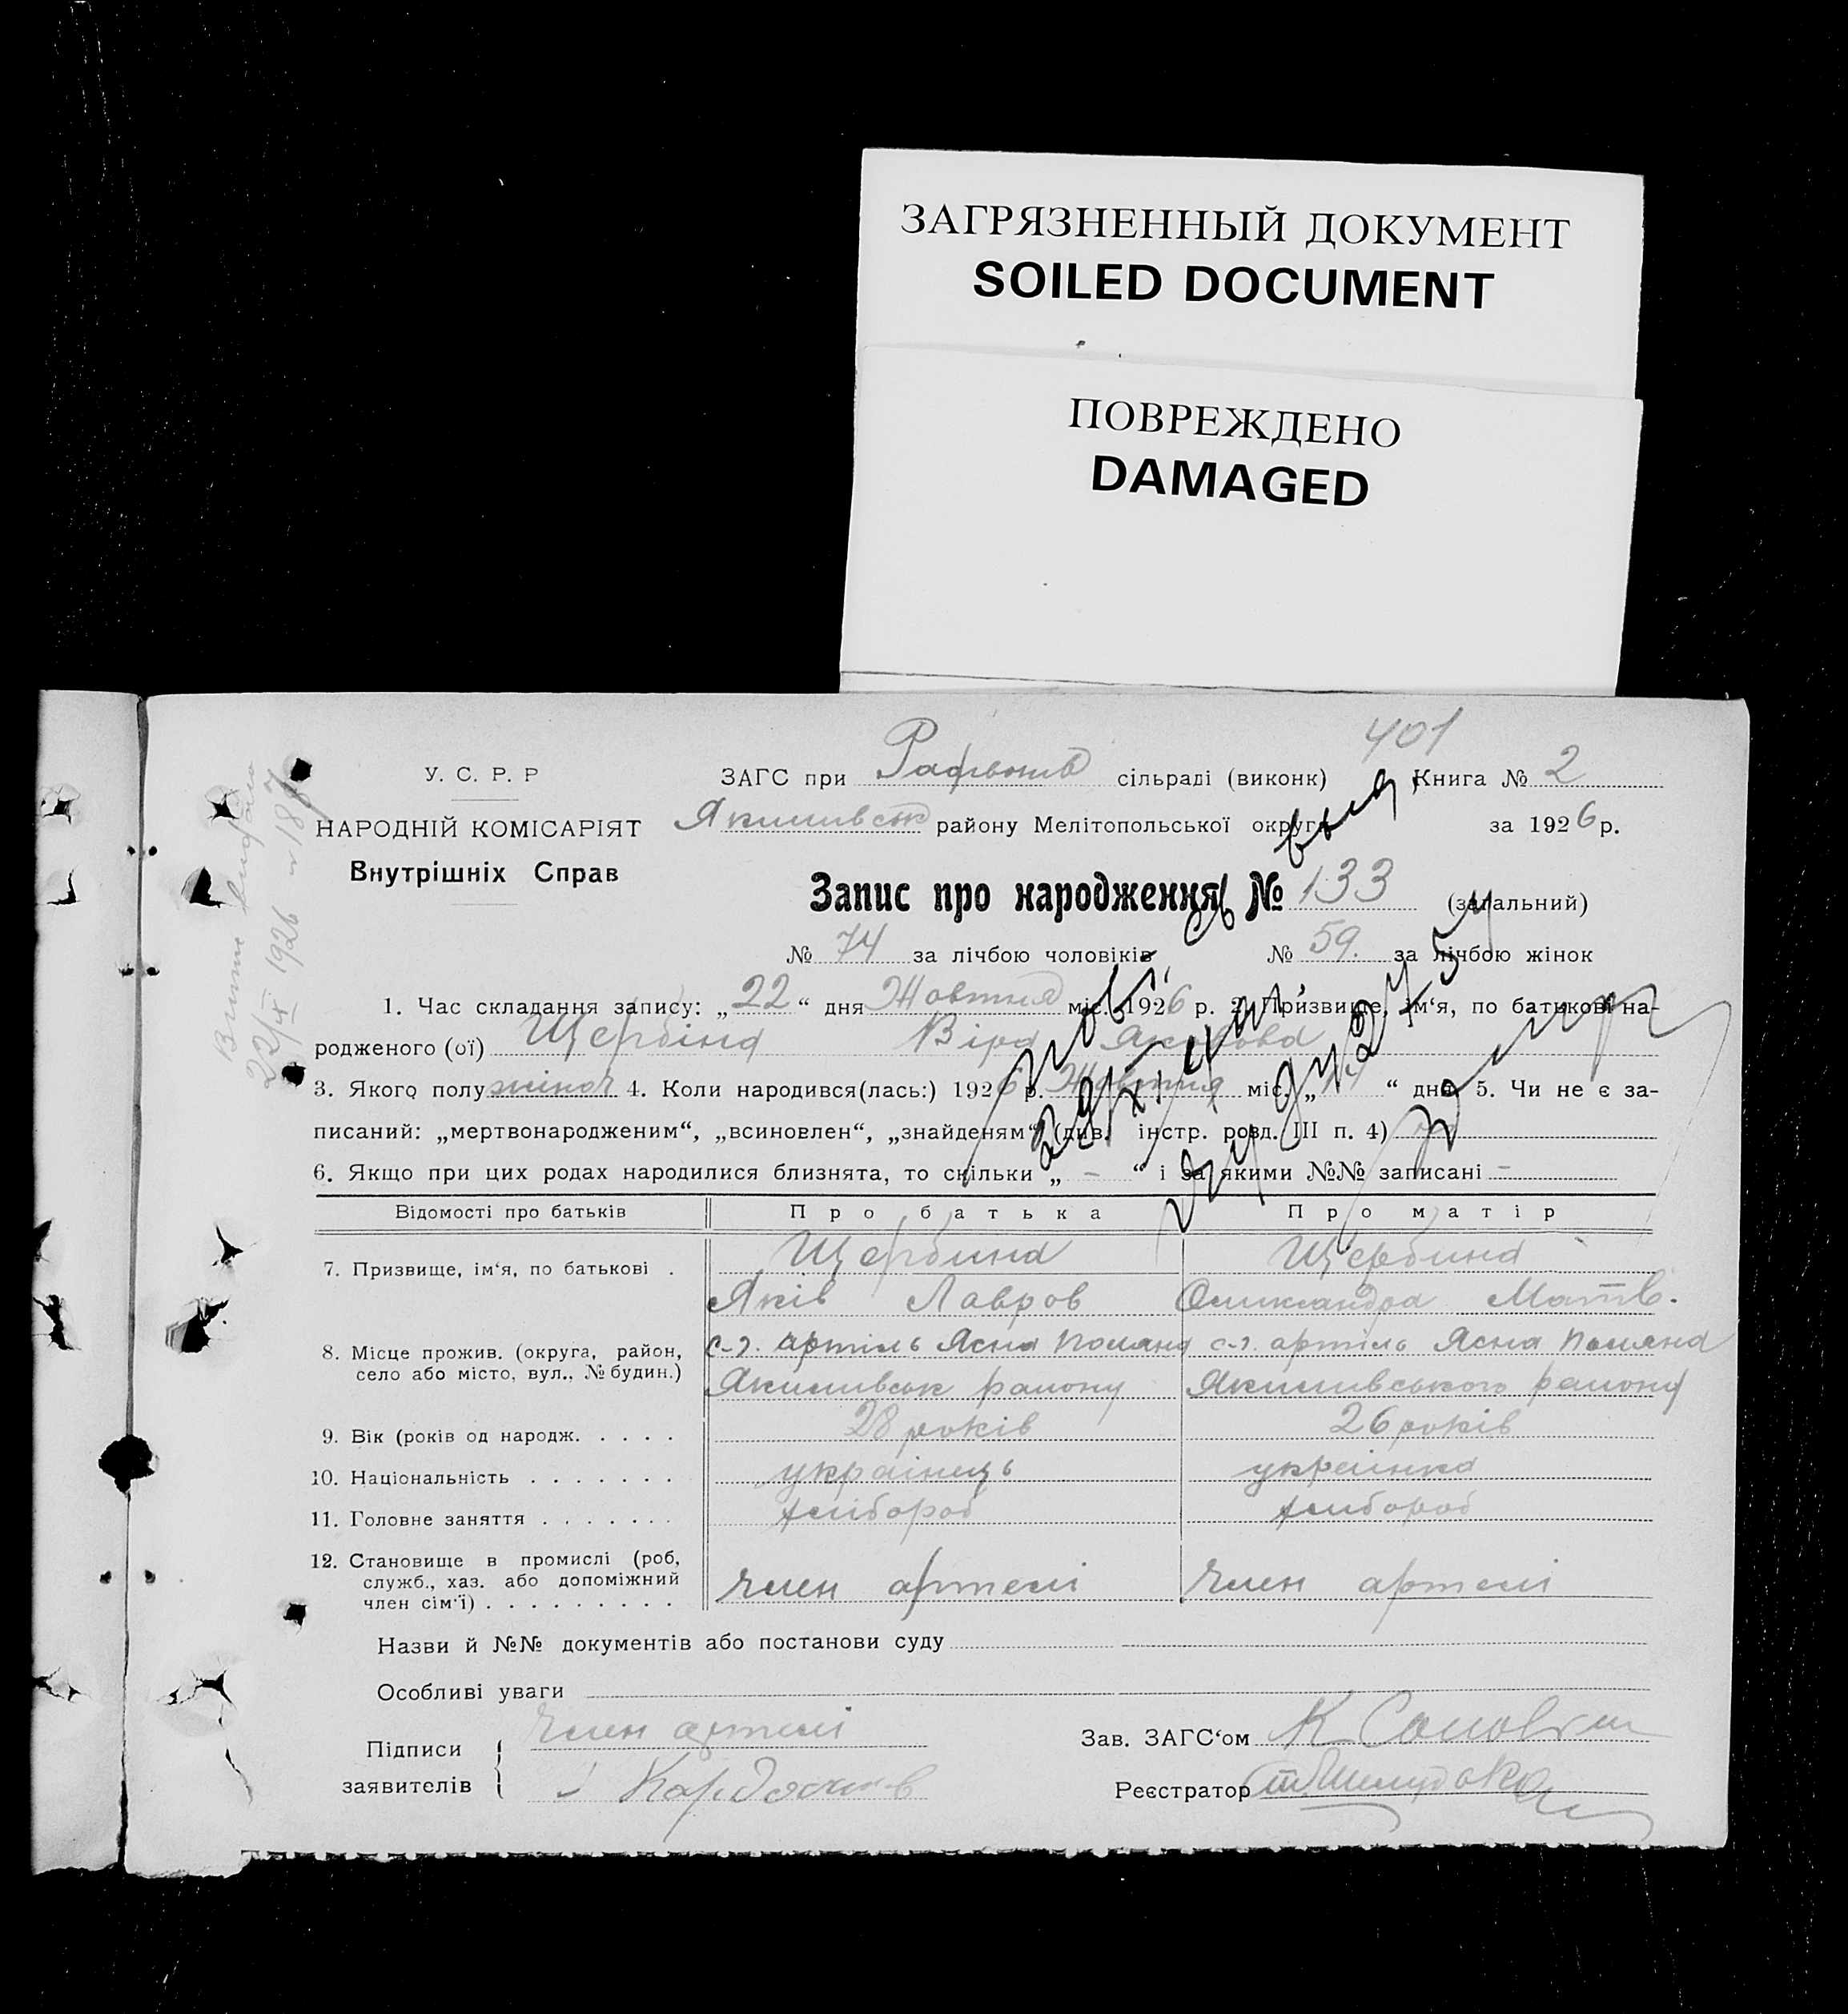 ЗАГРЯЗНЕННЫЙ ДОКУМЕНТ
SOILED DOCUMENT
ПОВРЕЖДЕНО
DAMAGED
401
У. С. Р. Р
НАРОДНІЙ КОМІСАРІЯТ
Внутрішніх Справ
ЗАГС при сільраді (виконк) Книга № 2
Якимівськ району Мелітопольської округи за 1926 р.
Запис про народження № 133 (загальний)
№ 74 за лічбою чоловіків № 59. за лічбою жінок
1. Час складання запису: „22“ дня Жовтня міс. 1926 р. 2. Призвище, ім‘я, по батькові на-
родженого (ої) Щербіна Віра Яковова
3. Якого полу жіноч 4. Коли народився(лась:) 1926 р. Жовтня міс. „ “ дня 5. Чи не є за-
писаний: „мертвонародженим“, „всиновлен“, „знайденям“ (див. інстр. розд. III п. 4)
6. Якщо при цих родах народилися близнята, то скільки „ - “ і за якими №№ записані -
Відомості про батьків Про батька Про матір
7. Призвище, ім‘я, по батькові . Щербина Щербина
Яків Лавров Олександра Матв.
8. Місце прожив. (округа, район, село або місто, вул., № будин.) с-г. артіль Ясна Поляна с-г. артіль Ясна Поляна
Якимівськ району Якимівського району
9. Вік (років од народж. . . . . 28 років 26 років
10. Національність . . . . . . . українець українка
11. Головне заняття . . . . . . . хлібороб хлібороб
12. Становище в промислі (роб, служб., хаз. або допоміжний член сім‘ї) . . . . . . . . . член артелі член артелі
Назви й №№ документів або постанови суду
Особливі уваги
Підписи заявителів член артелі
Зав. ЗАГС‘ом К
Реєстратор
22/X 1926